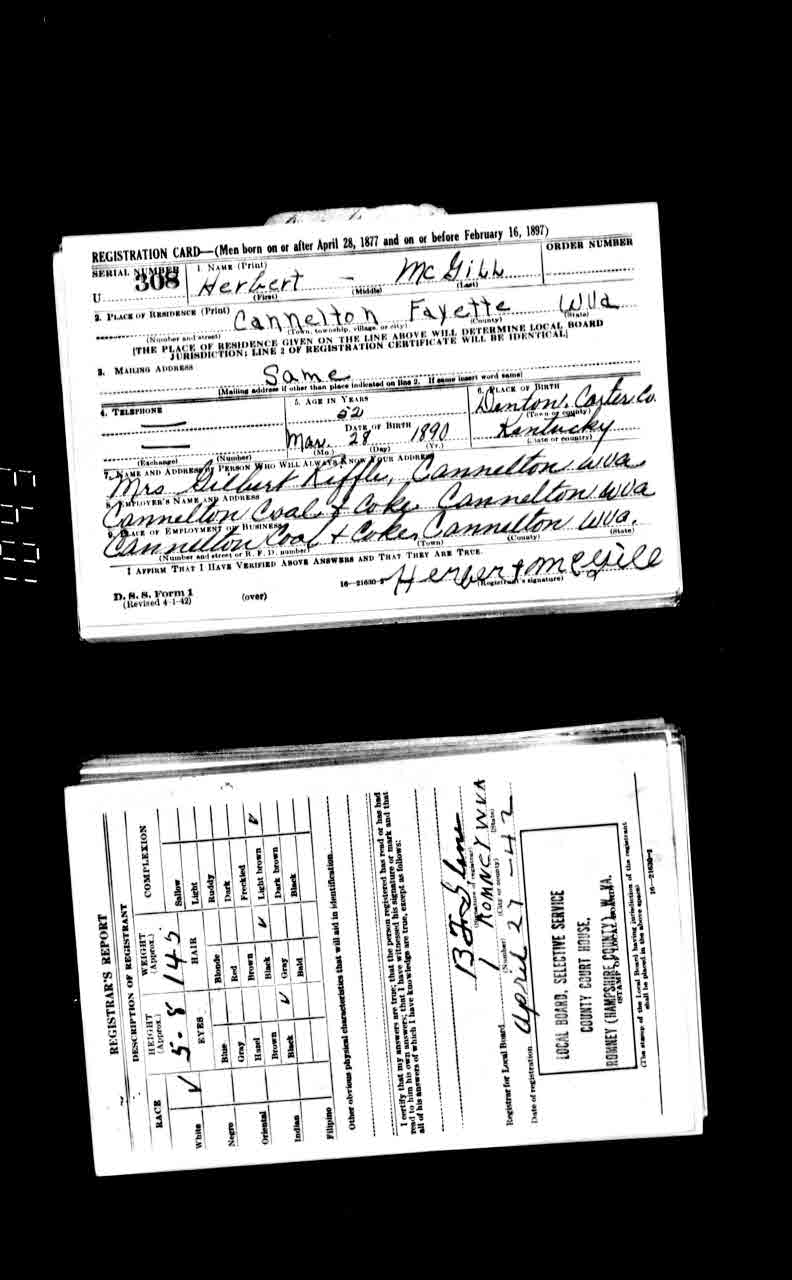 REGISTRATION CARD—(Men born on or after April 28, 1877 and on or before February 16, 1897)
SERIAL NUMBER
1. NAME (Print)
ORDER NUMBER
U 308
Herbert - McGill
(First) (Middle) (Last)
2. PLACE OF RESIDENCE (Print)
Cannelton Fayette WVa
(Number and street) (Town, township, village, or city) (County) (State)
[THE PLACE OF RESIDENCE GIVEN ON THE LINE ABOVE WILL DETERMINE LOCAL BOARD
JURISDICTION; LINE 2 OF REGISTRATION CERTIFICATE WILL BE IDENTICAL]
3. MAILING ADDRESS
Same
[Mailing address if other than place indicated on line 2. If same insert word same]
4. TELEPHONE
5. AGE IN YEARS
6. PLACE OF BIRTH
52
Denton, Carter Co.
(Town or county)
DATE OF BIRTH
Mar. 28 1890
Kentucky
(Exchange) (Number)
(Mo.) (Day) (Yr.)
(State or country)
7. NAME AND ADDRESS OF PERSON WHO WILL ALWAYS KNOW YOUR ADDRESS
Mrs Gilbert Kiffle, Cannelton WVa
8. EMPLOYER'S NAME AND ADDRESS
Cannelton Coal & Coke Cannelton WVa
9. PLACE OF EMPLOYMENT OR BUSINESS
Cannelton Coal + Coke, Cannelton WVa.
(Number and street or R. F. D. number) (Town) (County) (State)
I AFFIRM THAT I HAVE VERIFIED ABOVE ANSWERS AND THAT THEY ARE TRUE.
Herbert McGill
D. S. S. Form 1
(Revised 4-1-42)
(over)
16—21630-2
(Registrant's signature)
REGISTRAR'S REPORT
DESCRIPTION OF REGISTRANT
RACE
HEIGHT (Approx.)
WEIGHT (Approx.)
COMPLEXION
5-8 145
EYES
HAIR
White ✓
Negro
Oriental
Indian
Filipino
Blue
Gray
Hazel
Brown ✓
Black
Blonde
Red
Brown
Black ✓
Gray
Bald
Sallow
Light
Ruddy
Dark
Freckled
Light brown ✓
Dark brown
Black
Other obvious physical characteristics that will aid in identification
I certify that my answers are true; that the person registered has read or has had
read to him his own answers; that I have witnessed his signature or mark and that
all of his answers of which I have knowledge are true, except as follows:
Registrar for Local Board 1 ROMNEY WVA
(Number) (City or county) (State)
Date of registration April 27-42
LOCAL BOARD, SELECTIVE SERVICE
COUNTY COURT HOUSE,
ROMNEY (HAMPSHIRE COUNTY), W. VA.
(STAMP OF LOCAL BOARD)
(The stamp of the Local Board having jurisdiction of the registrant
shall be placed in the above space)
16—21630-1